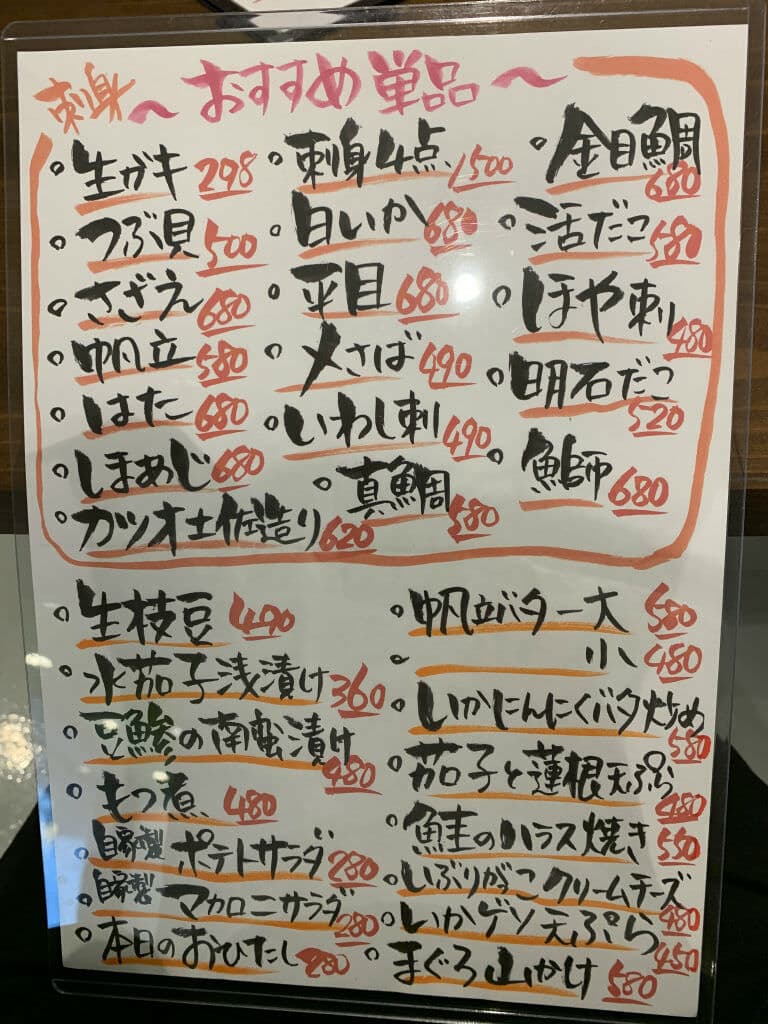 刺身 〜おすすめ単品〜
生ガキ 298
つぶ貝 500
さざえ 680
帆立 580
はた 680
しまあじ 680
カツオ土佐造り 620
刺身4点 1500
白いか 680
平目 680
〆さば 490
いわし刺 490
真鯛 580
金目鯛 680
活だこ 580
ほや刺 480
明石だこ 520
鰤 680
生枝豆 490
水茄子浅漬け 360
豆鯵の南蛮漬け 480
もつ煮 480
自家製ポテトサラダ 280
自家製マカロニサラダ 280
本日のおひたし 280
帆立バター大 580
小 480
いかにんにくバタ炒め 580
茄子と蓮根天ぷら 480
鮭のハラス焼き 550
いぶりがっこクリームチーズ 480
いかゲソ天ぷら 450
まぐろ山かけ 580